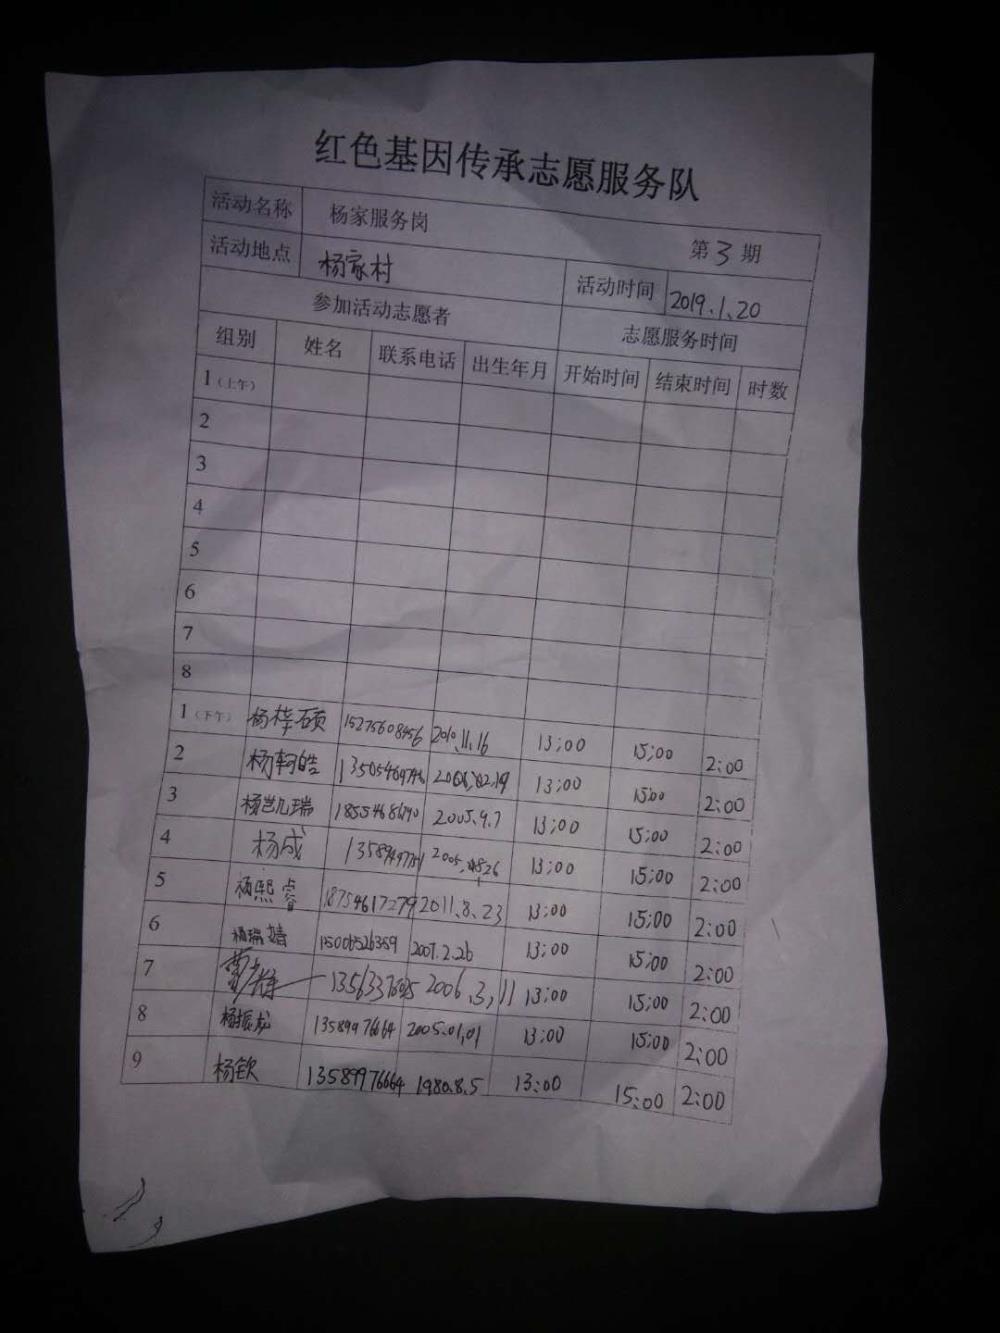 红色基因传承志愿服务队
活动名称 杨家服务岗 第3期
活动地点 杨家村 活动时间 2019.1.20
参加活动志愿者 志愿服务时间
组别 姓名 联系电话 出生年月 开始时间 结束时间 时数
1（上午）
2
3
4
5
6
7
8
1（下午） 杨梓硕 15275608456 2010.11.16 13:00 15:00 2:00
2 杨轲皓 2006.02.19 13:00 15:00 2:00
3 杨凯瑞 18554686190 2005.9.7 13:00 15:00 2:00
4 杨成 13:00 15:00 2:00
5 杨熙睿 18754617279 2011.8.23 13:00 15:00 2:00
6 杨瑞婧 15006526359 2007.2.26 13:00 15:00 2:00
7 2006.3.11 13:00 15:00 2:00
8 杨振龙 13589976664 2005.01.01 13:00 15:00 2:00
9 杨钦 13589976664 1980.8.5 13:00 15:00 2:00